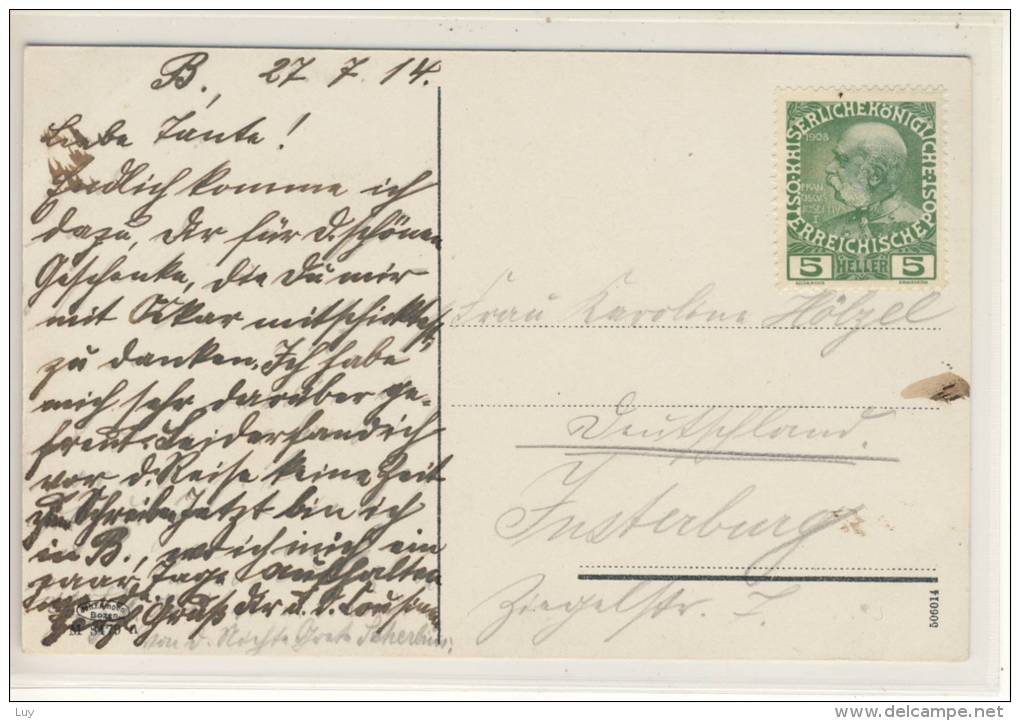 B., 27 7 14.
Liebe Tante!
Endlich komme ich
dazu, Dir für d. schönen
Geschenke, die Du mir
mit Oskar mitschicktest,
zu danken. Ich habe
mich sehr darüber ge-
freut. Leider fand ich
vor d. Reise keine Zeit
zum Schreiben. Jetzt bin ich
in B., wo ich mich ein
paar Tage aufhalten
Gruß Dir u. d. Cousinen
von d. Nichte Grete
Bozen
M 3479
K.K. ÖSTERREICHISCHE POST
KAISERLICHE KÖNIGLICHE
1908
FRANZ JOSEF I
5 HELLER 5
Frau Karoline Hölzel
Deutschland.
Insterburg
Ziegelstr. 7.
506014
Luy
www.delcampe.net